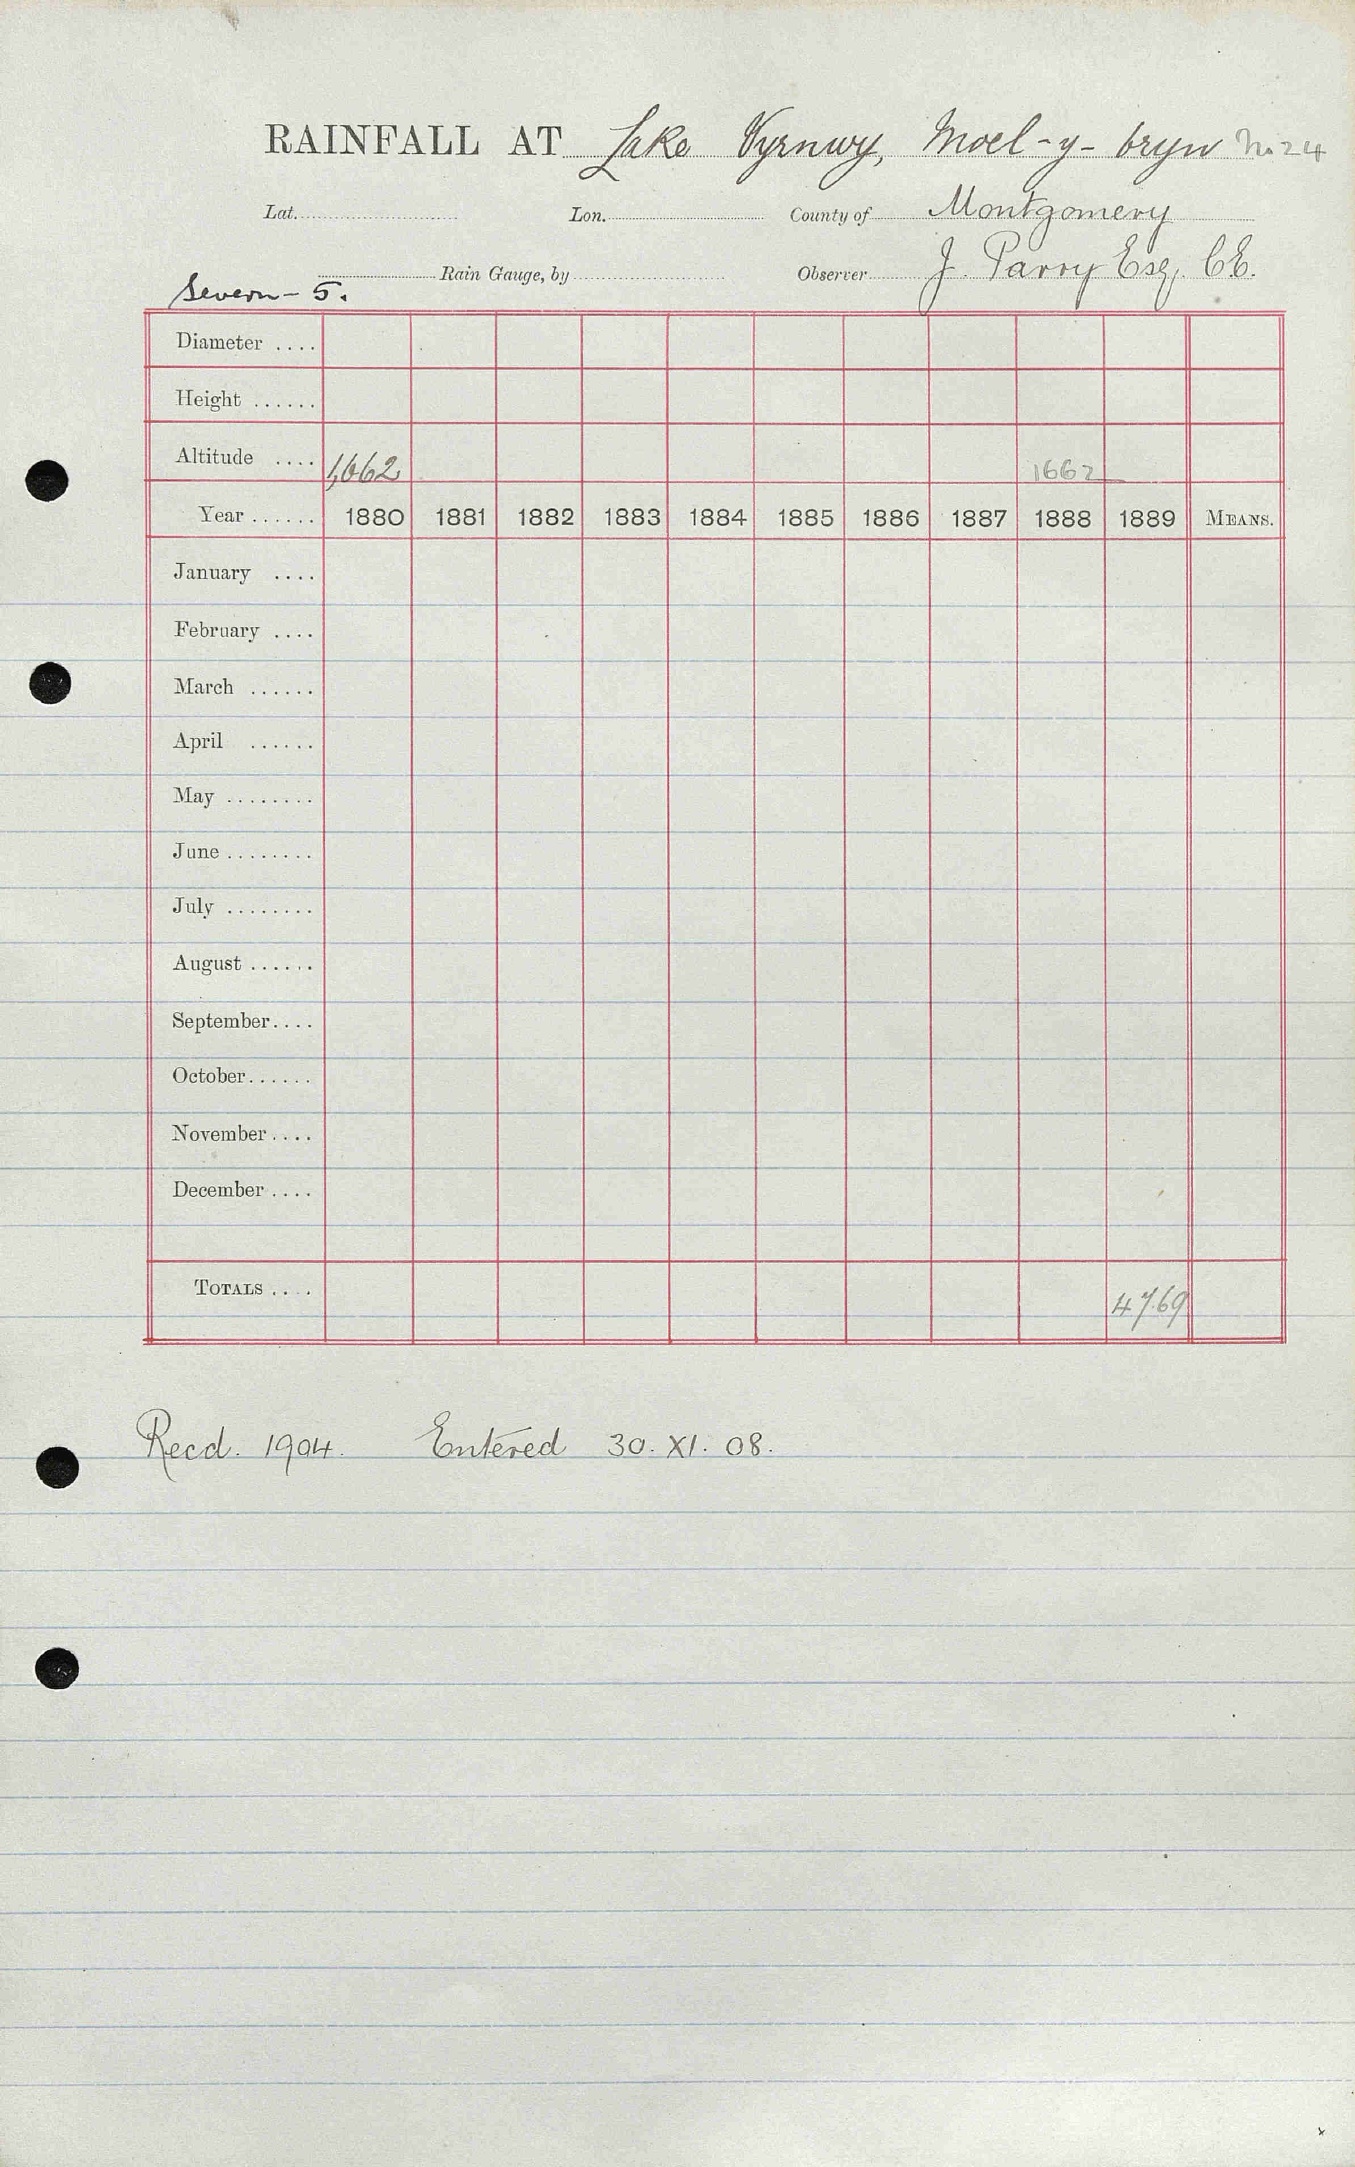 RAINFALL AT Lake Vyrnwy, Moel-y-bryn No 24
Lat. Lon. County of Montgomery
Rain Gauge, by Observer J. Parry Esq. C.E.
Severn - 5.
Diameter ....
Height ......
Altitude .... 1,662 1662
Year ...... 1880 1881 1882 1883 1884 1885 1886 1887 1888 1889 MEANS.
January ....
February ....
March ......
April ......
May ........
June ........
July ........
August ......
September....
October......
November....
December....
TOTALS .... 47.69
Recd. 1904. Entered 30. XI. 08.